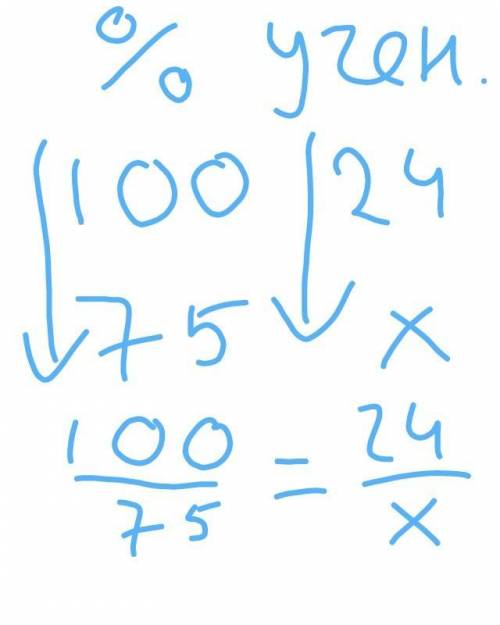 % учен.
100 24
75 x
100/75 = 24/x